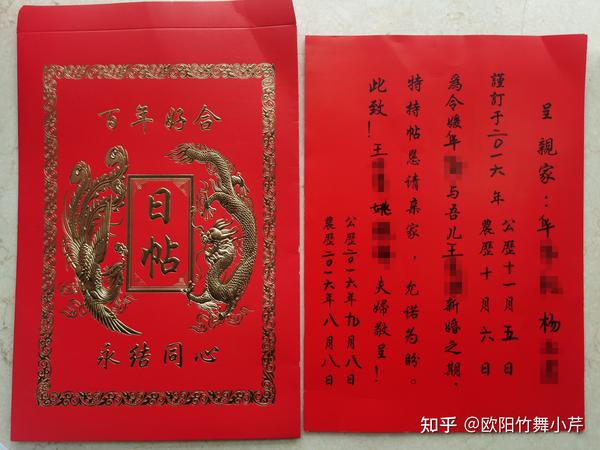 百年好合
日帖
永结同心
呈親家：年 杨
謹訂于二〇一六年
公歷十一月五日
農歷十月六日
為令嬡年 与吾儿王 新婚之期，
特持帖恳请亲家，允诺为盼。
此致！王 姚 夫婦敬呈！
公歷二〇一六年九月八日
農歷二〇一六年八月八日
知乎 @欧阳竹舞小芹